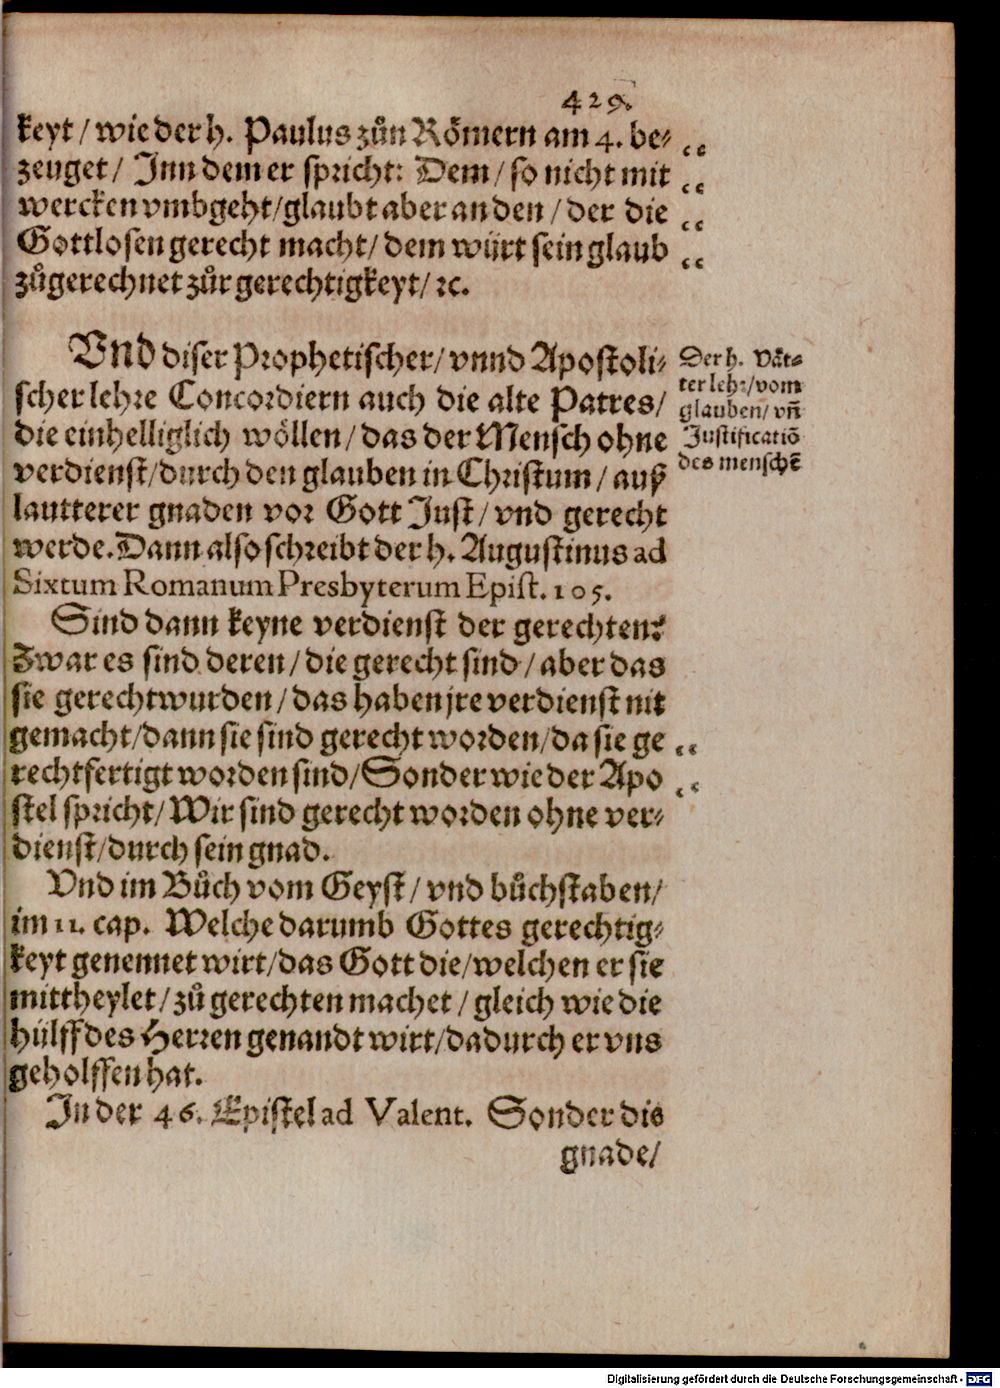 429.
keyt / wie der h. Paulus zůn Römern am 4. be⸗
zeuget / Inn dem er spricht: Dem / so nicht mit
wercken vmbgeht / glaubt aber an den / der die
Gottlosen gerecht macht / dem würt sein glaub
zůgerechnet zůr gerechtigkeyt / ꝛc.
Vnd diser Prophetischer / vnnd Apostoli⸗
scher lehre Concordiern auch die alte Patres /
die einhelliglich wöllen / das der Mensch ohne
verdienst / durch den glauben in Christum / auß
lautterer gnaden vor Gott Just / vnd gerecht
werde. Dann also schreibt der h. Augustinus ad
Sixtum Romanum Presbyterum Epist. 105.
Der h. Vät⸗
ter lehr / vom
glauben / vñ
Justificatiō
des menschē
Sind dann keyne verdienst der gerechten?
Zwar es sind deren / die gerecht sind / aber das
sie gerecht wurden / das haben jre verdienst nit
gemacht / dann sie sind gerecht worden / da sie ge
rechtfertigt worden sind / Sonder wie der Apo
stel spricht / Wir sind gerecht worden ohne ver⸗
dienst / durch sein gnad.
Vnd im Bůch vom Geyst / vnd bůchstaben /
im 11. cap. Welche darumb Gottes gerechtig⸗
keyt genennet wirt / das Gott die / welchen er sie
mittheylet / zů gerechten machet / gleich wie die
hülff des Herren genandt wirt / dadurch er vns
geholffen hat.
In der 46. Epistel ad Valent. Sonder dis
gnade /
Digitalisierung gefördert durch die Deutsche Forschungsgemeinschaft - DFG